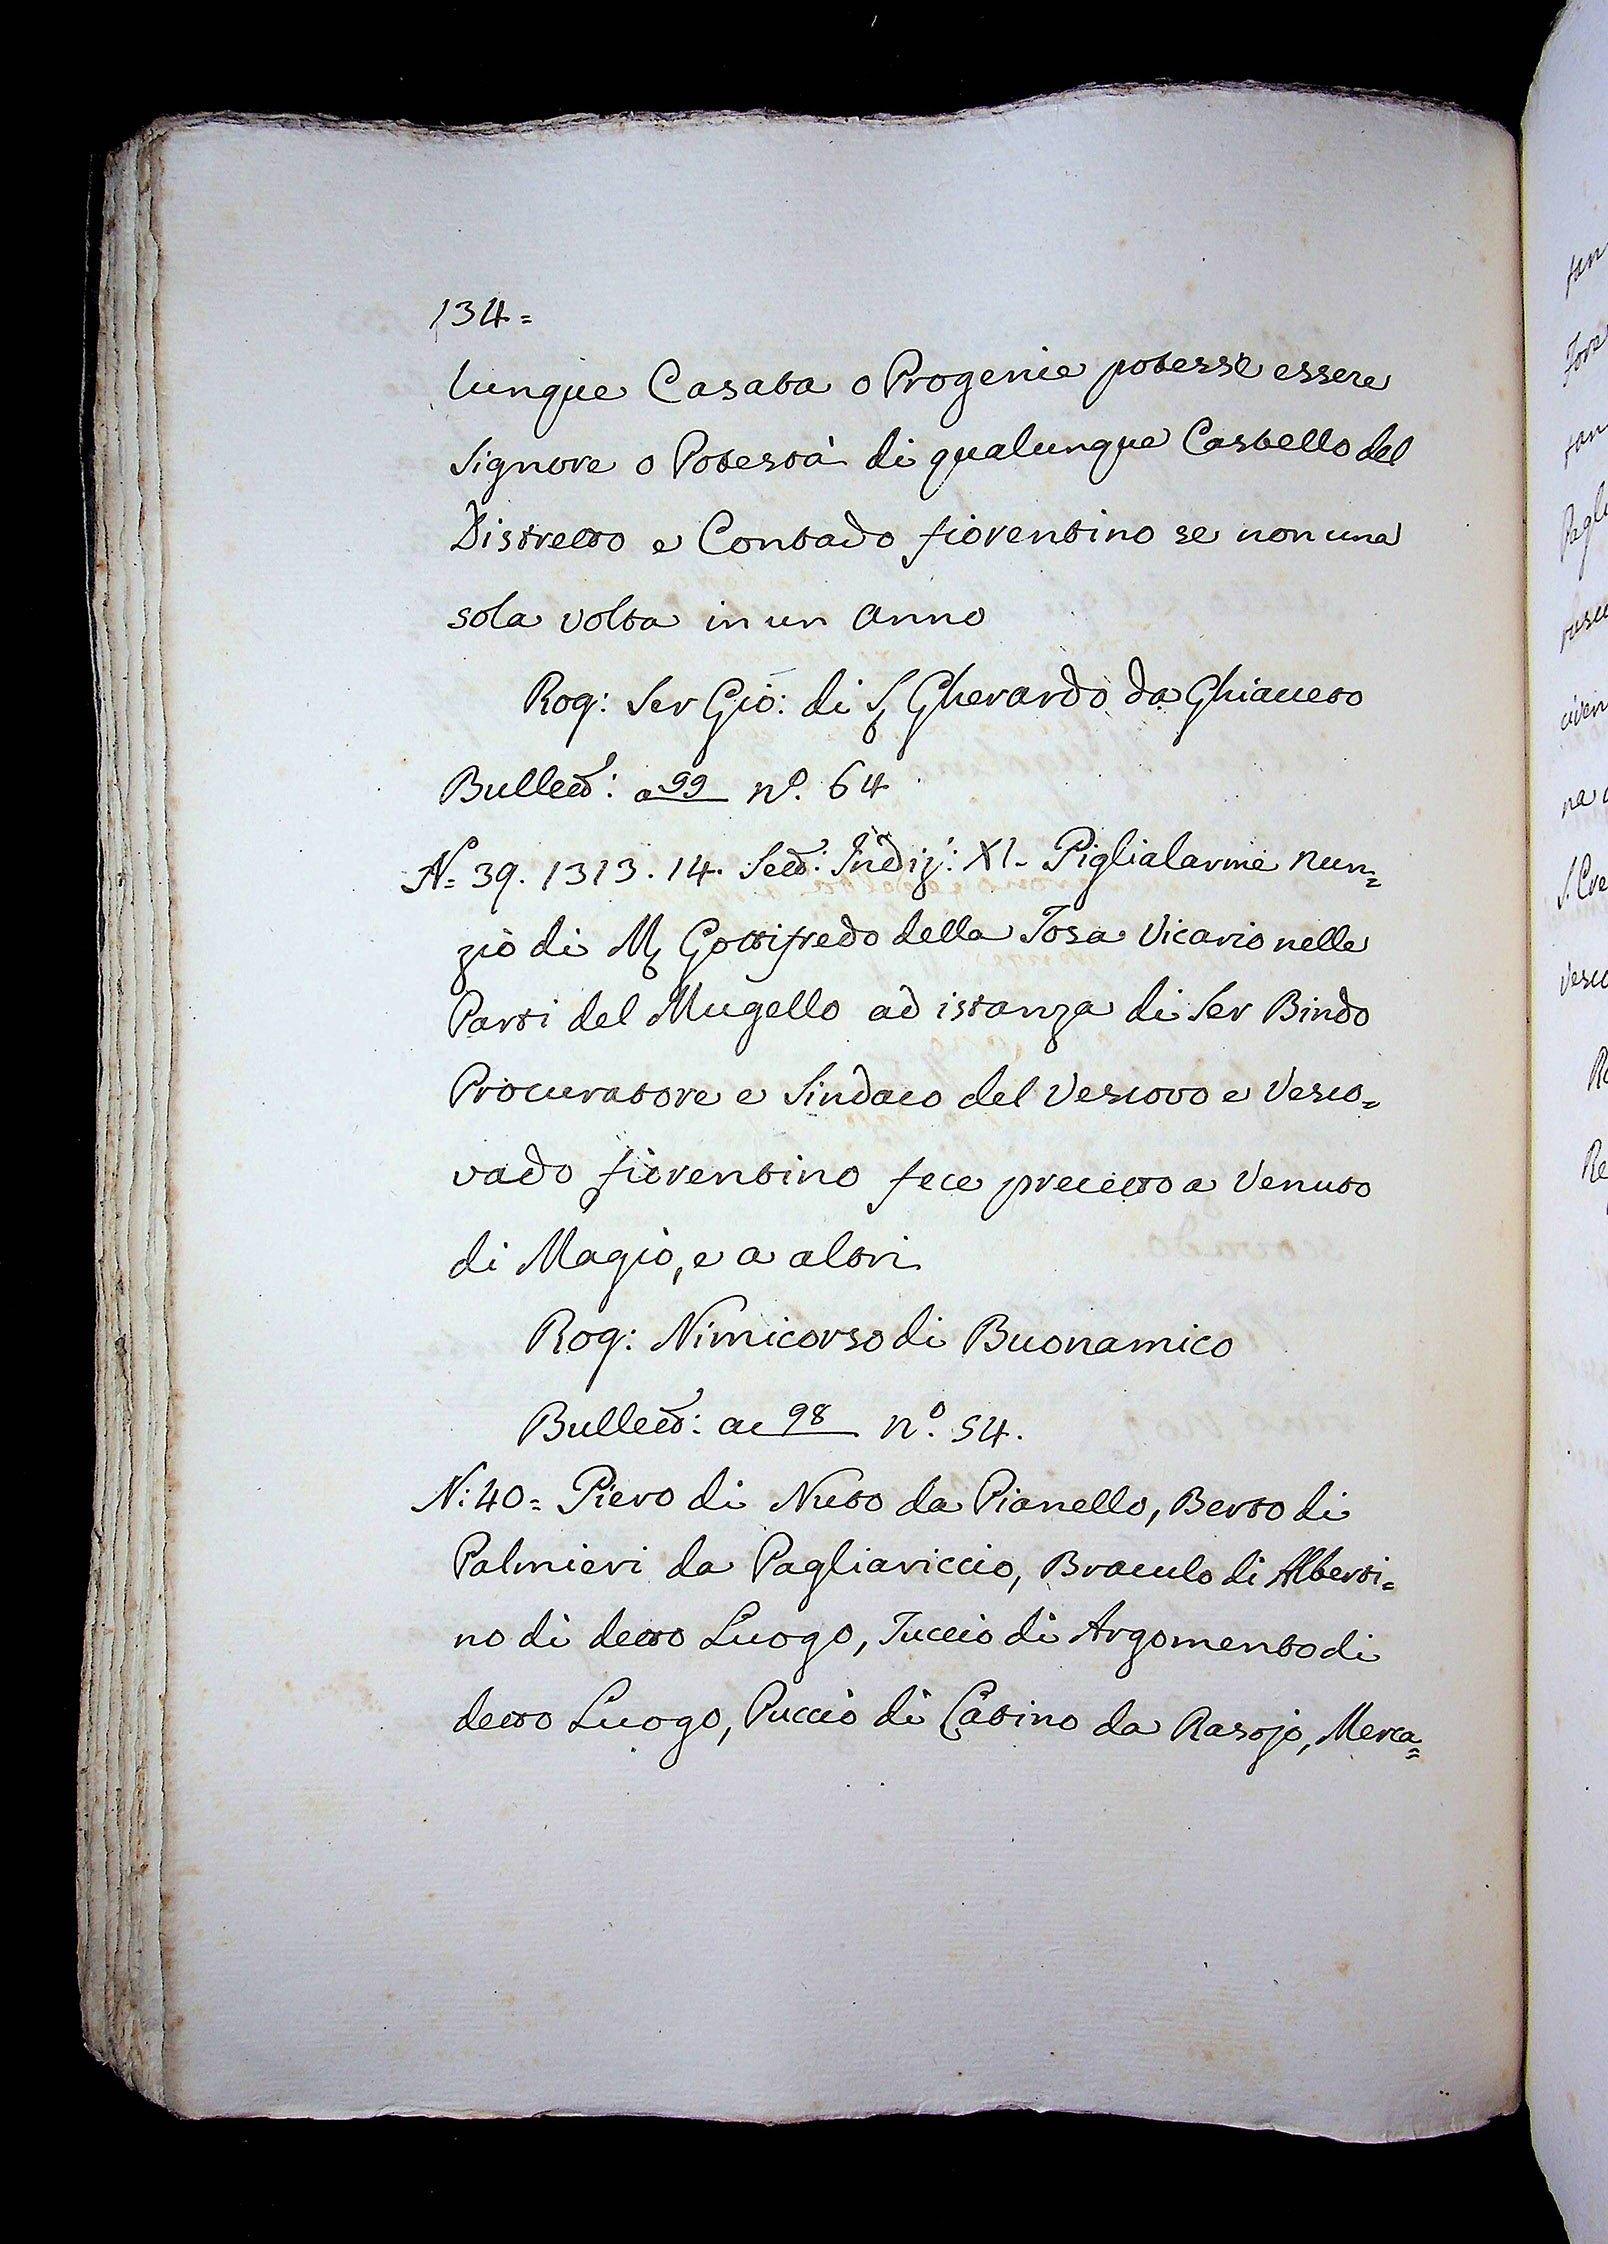 134=
lunque Casata o Progenie potesse essere
Signore o Potestà di qualunque Castello del
Distretto e Contado fiorentino se non una
sola volta in un Anno
Rog: Ser Gio: di S. Gherardo da Ghiaceto
Bullett: a 99 nº. 64
Nº 39. 1313. 14. Sett: Indiz: XI. Piglialarme Nun=
zio di M. Gottifredo della Tosa Vicario nelle
Parti del Mugello ad istanza di Ser Bindo
Procuratore e Sindaco del Vescovo e Vesco=
vado fiorentino fece precetto a Venuto
di Magio, e a altri
Rog: Nimicorso di Buonamico
Bullett: ac 98 nº. 54.
N: 40= Piero di Nuto da Pianello, Berto di
Palmieri da Pagliariccio, Braculo di Alberti=
no di detto Luogo, Tuccio di Argomento di
detto Luogo, Puccio di Catino da Rasojo, Merca=